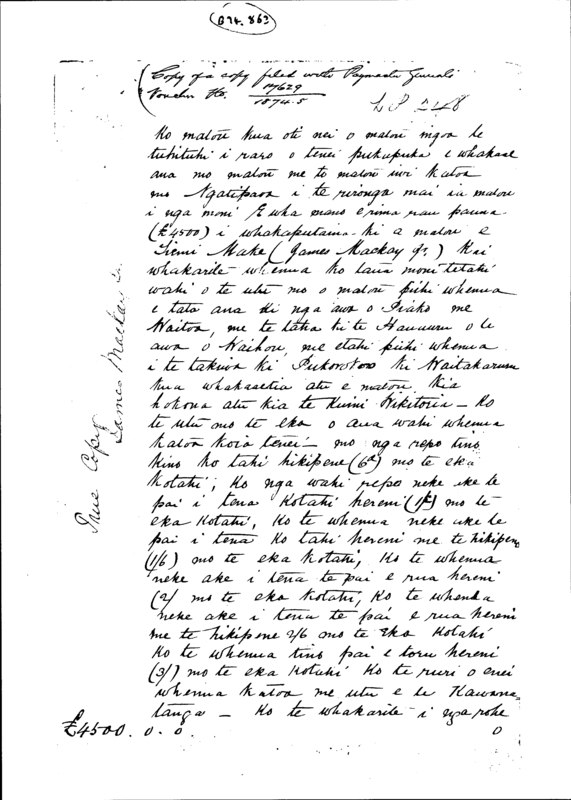 B74. 863
Copy of a copy filed with Paymaster Generals
Voucher No. 12629
1874.5
Ko matou kua oti nei o matou ingoa te
tuhituhi i raro o tenei pukapuka e whakaae
ana mo matou me to matou iwi katoa
mo Ngatipaoa i te rironga mai ia matou
i nga moni E wha mano e rima rau pauna
(£4500) i whakaputaina ki a matou e
Tiemi Make (James Mackay Jr.) Kai
whakarite whenua ko taua moni tetahi
wahi o te utu mo o matou pihi whenua
e tata ana ki nga awa o Piako me
Waitoa, me te taha ki te Hauauru o te
awa o Waihou, me etahi pihi whenua
i te takiwa ki Pukorokoro ki Waitakaruru
kua whakaaetia atu e matou. Kia
hokona atu kia te Kuini Wikitoria - Ko
te utu mo te eka o aua wahi whenua
katoa koia tenei - mo nga repo tino
kino ko tahi hikipene (6d) mo te eka
kotahi; Ko nga wahi repo neke ake te
pai i tena kotahi hereni (1/-) mo te
eka kotahi, Ko te whenua neke ake te
pai i tena ko tahi hereni me te hikipene
(1/6) mo te eka kotahi, Ko te whenua
neke ake i tena te pai e rua hereni
(2/) mo te eka kotahi, Ko te whenua
neke ake i tena te pai e rua hereni
me te hikipene 2/6 mo te eka kotahi
Ko te whenua tino pai e toru hereni
(3/) mo te eka kotahi Ko te ruri o enei
whenua katoa me utu e te Kawana
tanga - Ko te whakarite i nga rohe
£4500. 0. 0. 0
True Copy
James Mackay Jr.